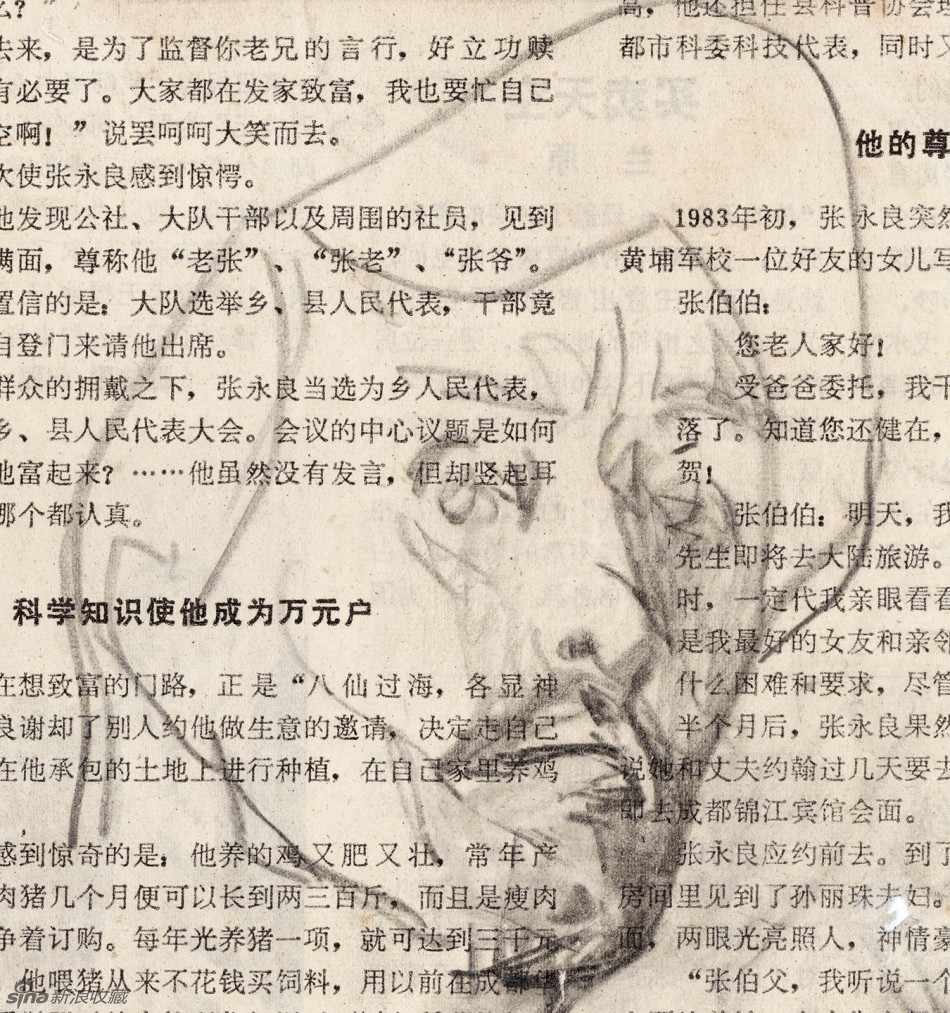 么？”
去来，是为了监督你老兄的言行，好立功赎
有必要了。大家都在发家致富，我也要忙自己
空啊！”说罢呵呵大笑而去。
次使张永良感到惊愕。
他发现公社、大队干部以及周围的社员，见到
满面，尊称他“老张”、“张老”、“张爷”。
置信的是：大队选举乡、县人民代表，干部竟
自登门来请他出席。
群众的拥戴之下，张永良当选为乡人民代表，
乡、县人民代表大会。会议的中心议题是如何
他富起来？……他虽然没有发言，但却竖起耳
那个都认真。
科学知识使他成为万元户
在想致富的门路，正是“八仙过海，各显神
良谢却了别人约他做生意的邀请，决定走自己
在他承包的土地上进行种植，在自己家里养鸡
感到惊奇的是：他养的鸡又肥又壮，常年产
肉猪几个月便可以长到两三百斤，而且是瘦肉
争着订购。每年光养猪一项，就可达到三千元
他喂猪从来不花钱买饲料，用以前在成都华
高，他还担任县科普协会理
都市科委科技代表，同时又
他的尊
1983年初，张永良突然
黄埔军校一位好友的女儿写
张伯伯：
您老人家好！
受爸爸委托，我于
落了。知道您还健在，
贺！
张伯伯：明天，我
先生即将去大陆旅游。
时，一定代我亲眼看看
是我最好的女友和亲邻
什么困难和要求，尽管
半个月后，张永良果然
说她和丈夫约翰过几天要去
即去成都锦江宾馆会面。
张永良应约前去。到了
房间里见到了孙丽珠夫妇。
面，两眼光亮照人，神情豪
“张伯父，我听说一个
sina新浪收藏